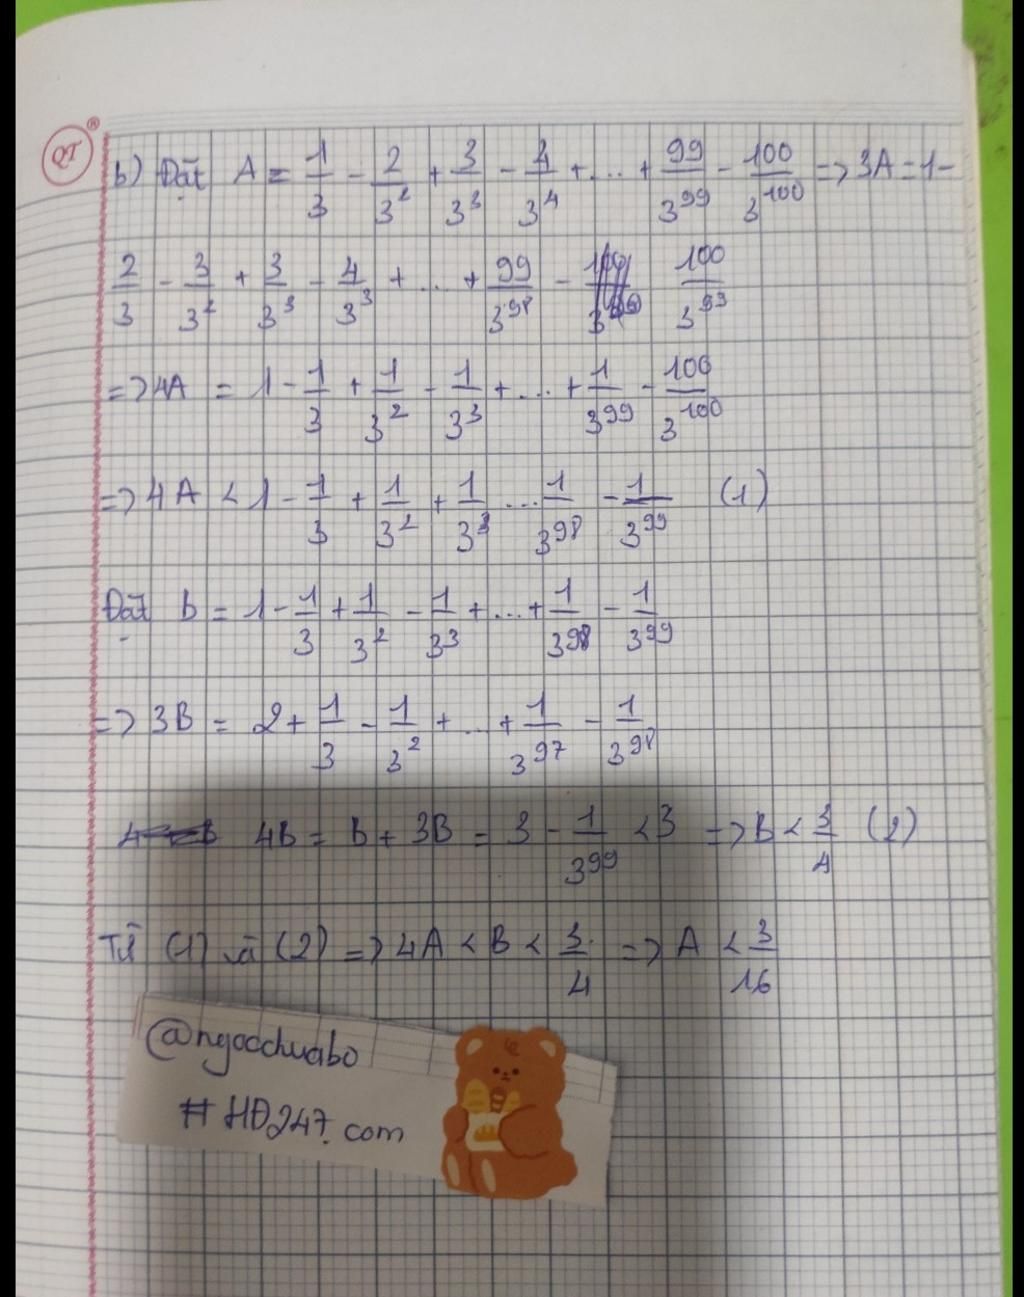 QT
b) Đặt A = 1/3 - 2/3² + 3/3³ - 4/3⁴ + ... + 99/3⁹⁹ - 100/3¹⁰⁰ => 3A = 1 -
2/3 - 3/3² + 3/3³ - 4/3³ + ... + 99/3⁹⁸ - 100/3⁹⁹
=> 4A = 1 - 1/3 + 1/3² - 1/3³ + ... + 1/3⁹⁹ - 100/3¹⁰⁰
=> 4A < 1 - 1/3 + 1/3² + 1/3³ ... 1/3⁹⁸ - 1/3⁹⁹ (1)
Đặt b = 1 - 1/3 + 1/3² - 1/3³ + ... + 1/3⁹⁸ - 1/3⁹⁹
=> 3B = 2 + 1/3 - 1/3² + ... + 1/3⁹⁷ - 1/3⁹⁸
4B = B + 3B = 3 - 1/3⁹⁹ < 3 => B < 3/4 (2)
Từ (1) và (2) => 4A < B < 3/4 => A < 3/16
@ngocchuabo
#HĐ247.com